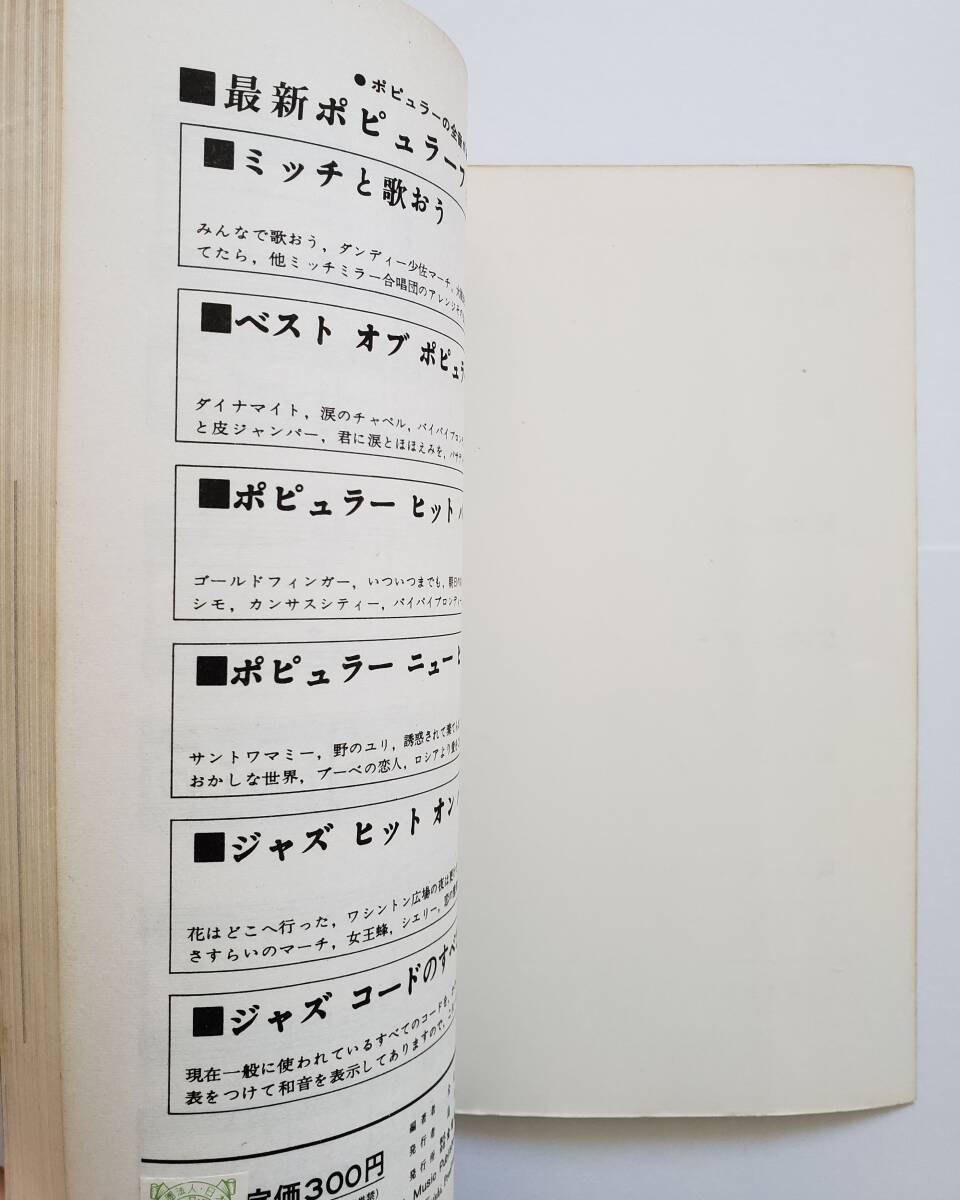 ●ポピュラーの全
■最新ポピュラー
■ミッチと歌おう
みんなで歌おう，ダンディー少佐マーチ，
てたら，他ミッチミラー合唱団のアレンジ
■ベスト オブ ポピュラ
ダイナマイト，涙のチャペル，バイバイブロン
と皮ジャンパー，君に涙とほほえみを，バ
■ポピュラー ヒット
ゴールドフィンガー，いついつまでも，朝日の
シモ，カンサスシティー，バイバイブロンディー
■ポピュラー ニュー
サントワマミー，野のユリ，誘惑されて棄て
おかしな世界，ブーベの恋人，ロシアより愛
■ジャズ ヒット オン
花はどこへ行った，ワシントン広場の夜は
さすらいのマーチ，女王蜂，シエリー，
■ジャズ コードのすべ
現在一般に使われているすべてのコードを，
表をつけて和音を表示してありますので，
編著者
発行者
発行所
Music
定価300円